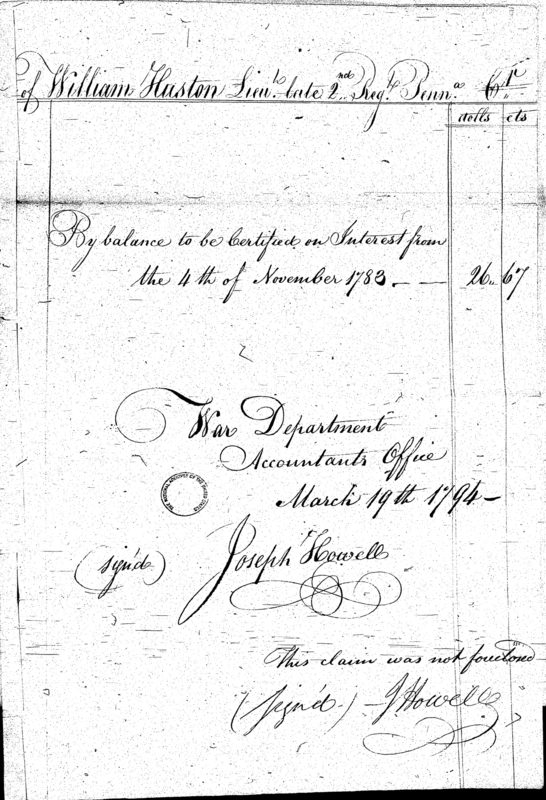 of William Huston Lieut. late 2nd. Regt. Penna. Cr
dolls cts
By balance to be Certified on Interest from
the 4th of November 1783. — — 26.. 67
War Department
Accountants Office
March 19th 1794 —
THE NATIONAL ARCHIVES OF THE UNITED STATES
(sign'd) Joseph Howell
This claim was not foreclosed
(sign'd.) J Howell